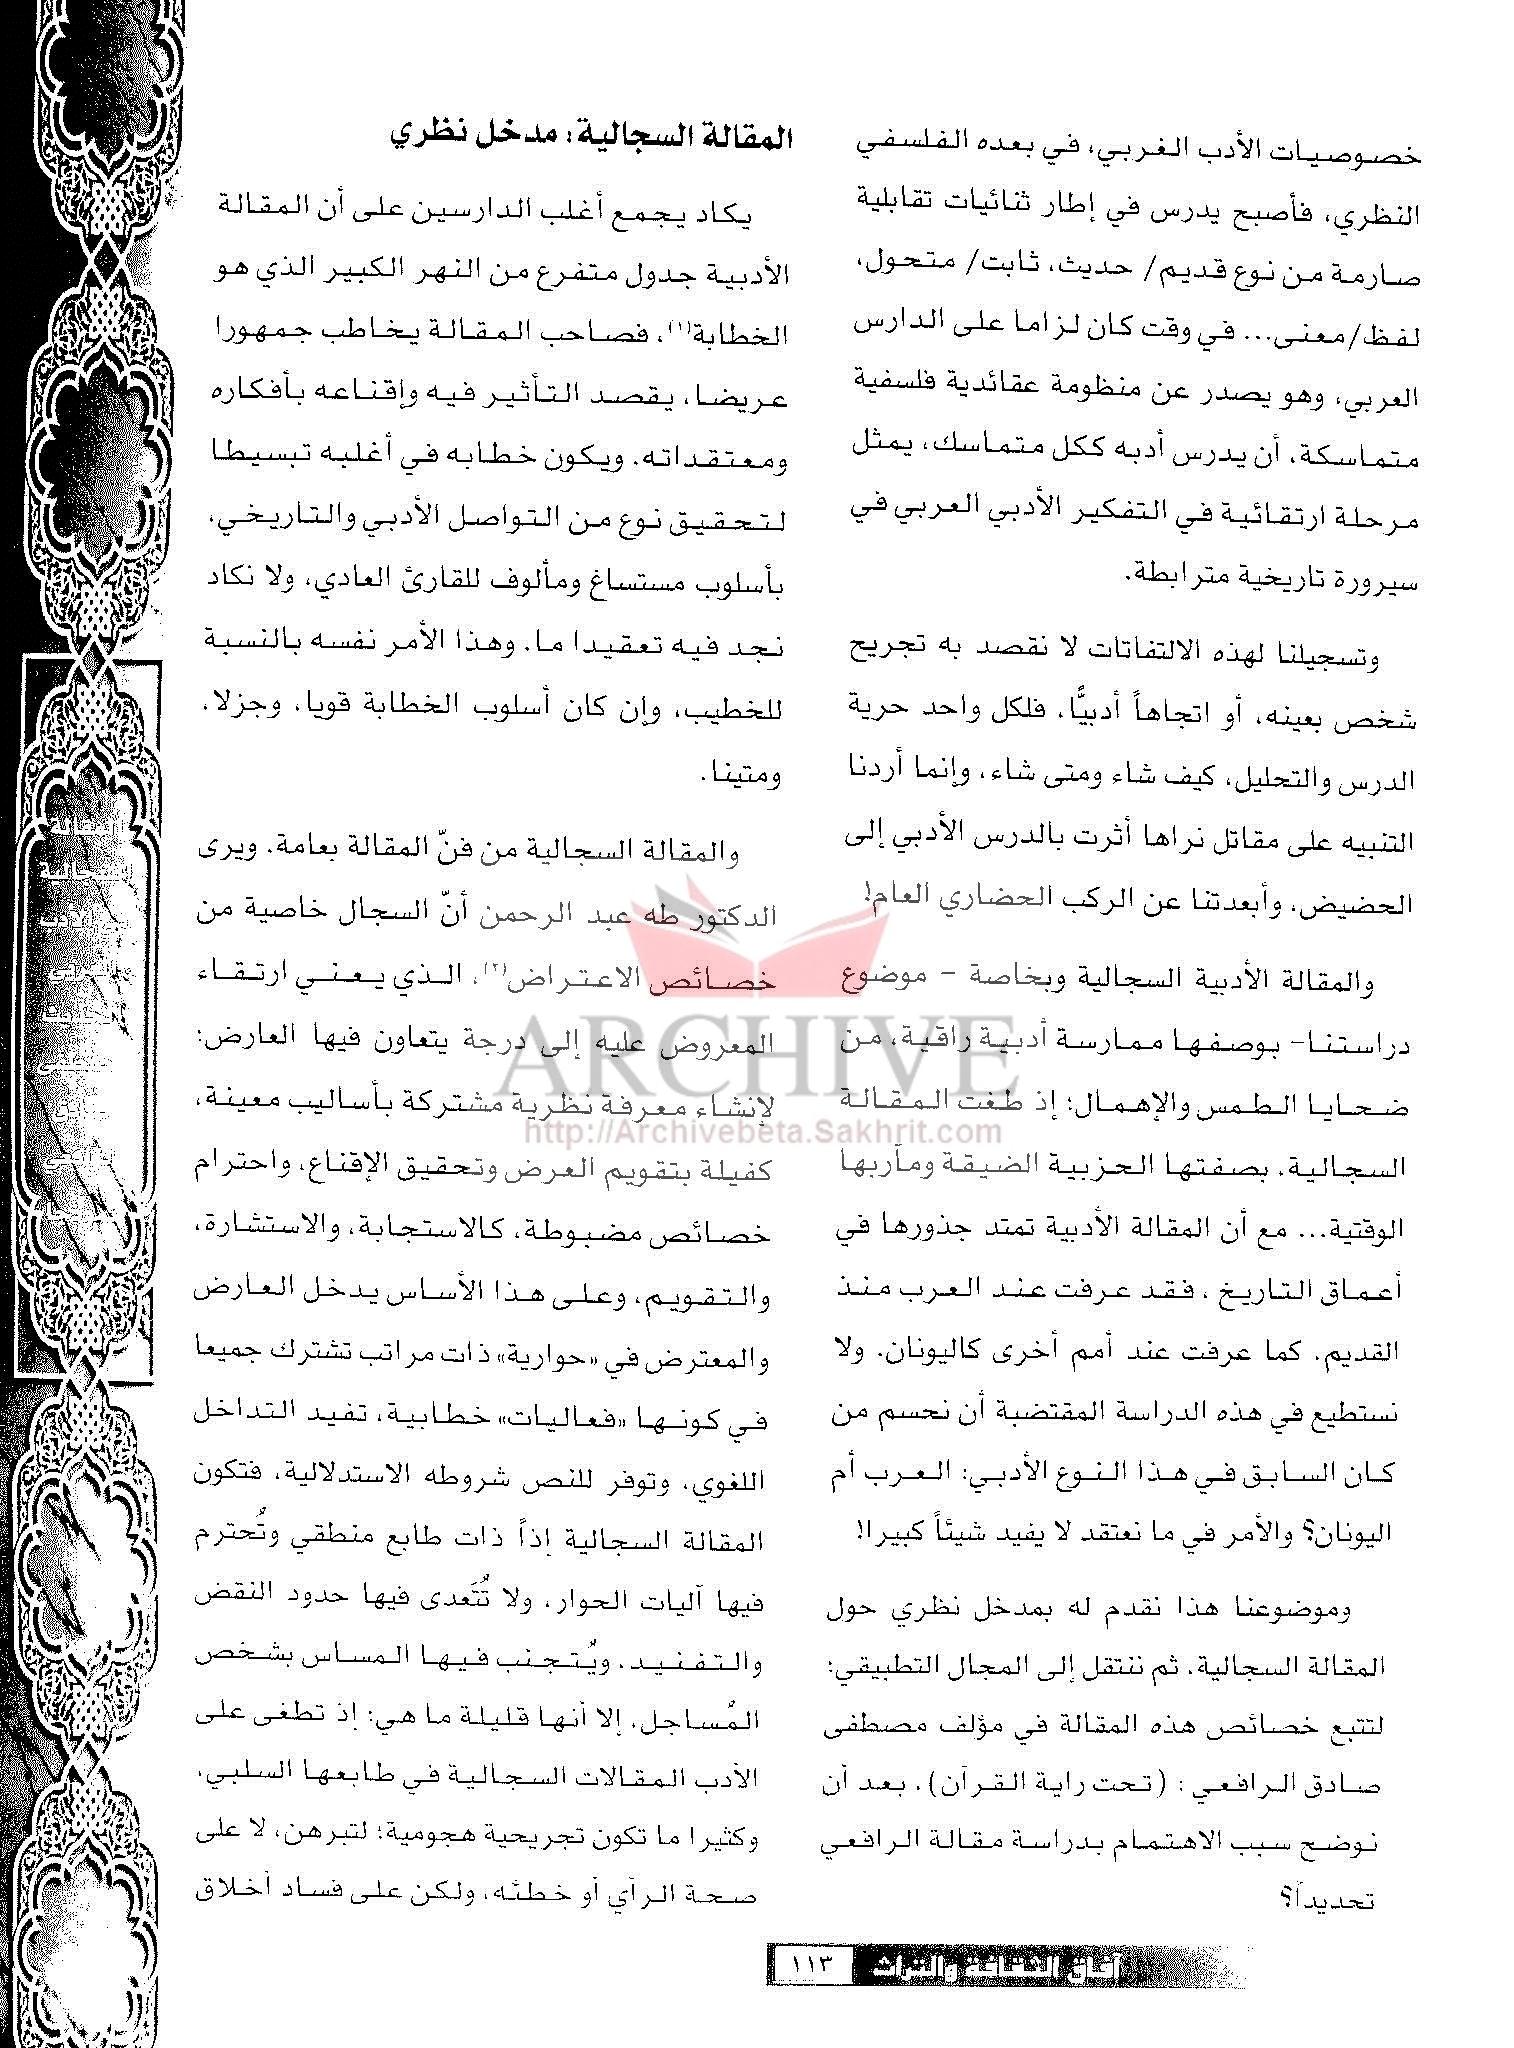 خصوصيات الأدب الغربي، في بعده الفلسفي
النظري، فأصبح يدرس في إطار ثنائيات تقابلية
صارمة من نوع قديم/ حديث، ثابت/ متحول،
لفظ/معنى... في وقت كان لزاما على الدارس
العربي، وهو يصدر عن منظومة عقائدية فلسفية
متماسكة، أن يدرس أدبه ككل متماسك، يمثل
مرحلة ارتقائية في التفكير الأدبي العربي في
سيرورة تاريخية مترابطة.
وتسجيلنا لهذه الالتفاتات لا نقصد به تجريح
شخص بعينه، أو اتجاهاً أدبيًّا، فلكل واحد حرية
الدرس والتحليل، كيف شاء ومتى شاء، وإنما أردنا
التنبيه على مقاتل نراها أثرت بالدرس الأدبي إلى
الحضيض، وأبعدتنا عن الركب الحضاري العام!
والمقالة الأدبية السجالية وبخاصة - موضوع
دراستنا- بوصفها ممارسة أدبية راقية، من
ضحايا الطمس والإهمال؛ إذ طغت المقالة
السجالية، بصفتها الحزبية الضيقة ومآربها
الوقتية... مع أن المقالة الأدبية تمتد جذورها في
أعماق التاريخ ، فقد عرفت عند العرب منذ
القديم، كما عرفت عند أمم أخرى كاليونان. ولا
نستطيع في هذه الدراسة المقتضبة أن نحسم من
كان السابق في هذا النوع الأدبي: العرب أم
اليونان؟ والأمر في ما نعتقد لا يفيد شيئاً كبيرا!
وموضوعنا هذا نقدم له بمدخل نظري حول
المقالة السجالية، ثم ننتقل إلى المجال التطبيقي؛
لتتبع خصائص هذه المقالة في مؤلف مصطفى
صادق الرافعي : (تحت راية القرآن)، بعد أن
نوضح سبب الاهتمام بدراسة مقالة الرافعي
تحديداً؟
المقالة السجالية: مدخل نظري
يكاد يجمع أغلب الدارسين على أن المقالة
الأدبية جدول متفرع من النهر الكبير الذي هو
الخطابة(١)، فصاحب المقالة يخاطب جمهورا
عريضا، يقصد التأثير فيه وإقناعه بأفكاره
ومعتقداته. ويكون خطابه في أغلبه تبسيطا
لتحقيق نوع من التواصل الأدبي والتاريخي،
بأسلوب مستساغ ومألوف للقارئ العادي، ولا نكاد
نجد فيه تعقيدا ما. وهذا الأمر نفسه بالنسبة
للخطيب، وإن كان أسلوب الخطابة قويا، وجزلا،
ومتينا.
والمقالة السجالية من فنّ المقالة بعامة. ويرى
الدكتور طه عبد الرحمن أنّ السجال خاصية من
خصائص الاعتراض(٢)، الذي يعني ارتقاء
المعروض عليه إلى درجة يتعاون فيها العارض؛
لإنشاء معرفة نظرية مشتركة بأساليب معينة،
كفيلة بتقويم العرض وتحقيق الإقناع، واحترام
خصائص مضبوطة، كالاستجابة، والاستشارة،
والتقويم، وعلى هذا الأساس يدخل العارض
والمعترض في «حوارية» ذات مراتب تشترك جميعا
في كونها «فعاليات» خطابية، تفيد التداخل
اللغوي، وتوفر للنص شروطه الاستدلالية، فتكون
المقالة السجالية إذاً ذات طابع منطقي وتُحترم
فيها آليات الحوار، ولا تُتَعدى فيها حدود النقض
والتفنيد، ويُتجنب فيها المساس بشخص
المُساجل، إلا أنها قليلة ما هي؛ إذ تطغى على
الأدب المقالات السجالية في طابعها السلبي،
وكثيرا ما تكون تجريحية هجومية؛ لتبرهن، لا على
صحة الرأي أو خطئه، ولكن على فساد أخلاق
ARCHIVE
http://Archivebeta.Sakhrit.com
آفاق الثقافة والتراث ١١٣